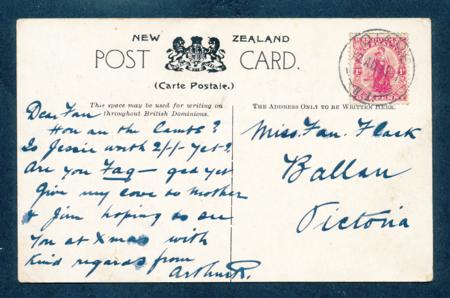 NEW ZEALAND
POST CARD.
(Carte Postale.)
This space may be used for writing on
throughout British Dominions.
THE ADDRESS ONLY TO BE WRITTEN HERE.
Dear Fan
How are the
Is Jessie worth 2/- yet?
Are you Fag - ged yet
Give my love to Mother
& Jim hoping to see
You at Xmas with
Kind regards from
Arthur R.
Miss. Fan. Flack
Ballan
Victoria